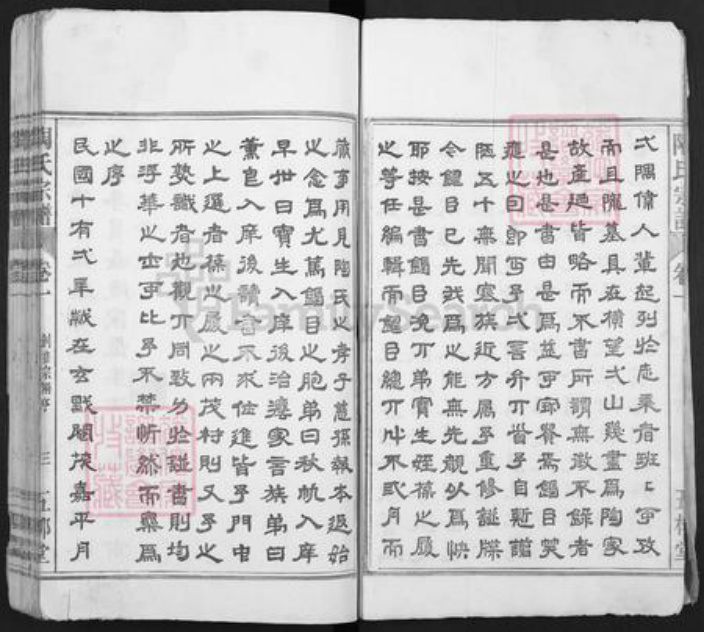 陶氏宗譜 卷一
五柳堂
弍隅偉人輩起列於志乘者班班可攷
而且隴墓具在橫望弍山幾盡爲陶家
故產迺皆略而不書所謂無徵不錄者
是也是書由是爲益可寶焉錫目笑
應之曰即予弍言弁丌首予自慙譾
陋五十無聞寒族近方屬予重修譜牒
令錫目已先我爲之能無先覩以爲快
耶按是書錫目丌弟寶生姪葆之殿
之等任編輯而錫目總丌成不弍月而
蕆事用見陶氏之孝子慈孫報本追始
之念爲尤篤錫目之胞弟曰秋帆入庠
早世曰寶生入庠後治邊家言族弟曰
薰皀入庠後韜晦不求仕進皆予門中
之上選者葆之殿之兩茂村則又予之
所獎識者也觀丌同力於譜書則均
非浮華之士可比予不禁忻然而樂爲
之序
民國十有弍年歲在玄黓閹茂嘉平月
陶氏宗譜 卷一
三 五柳堂
FamilySearch